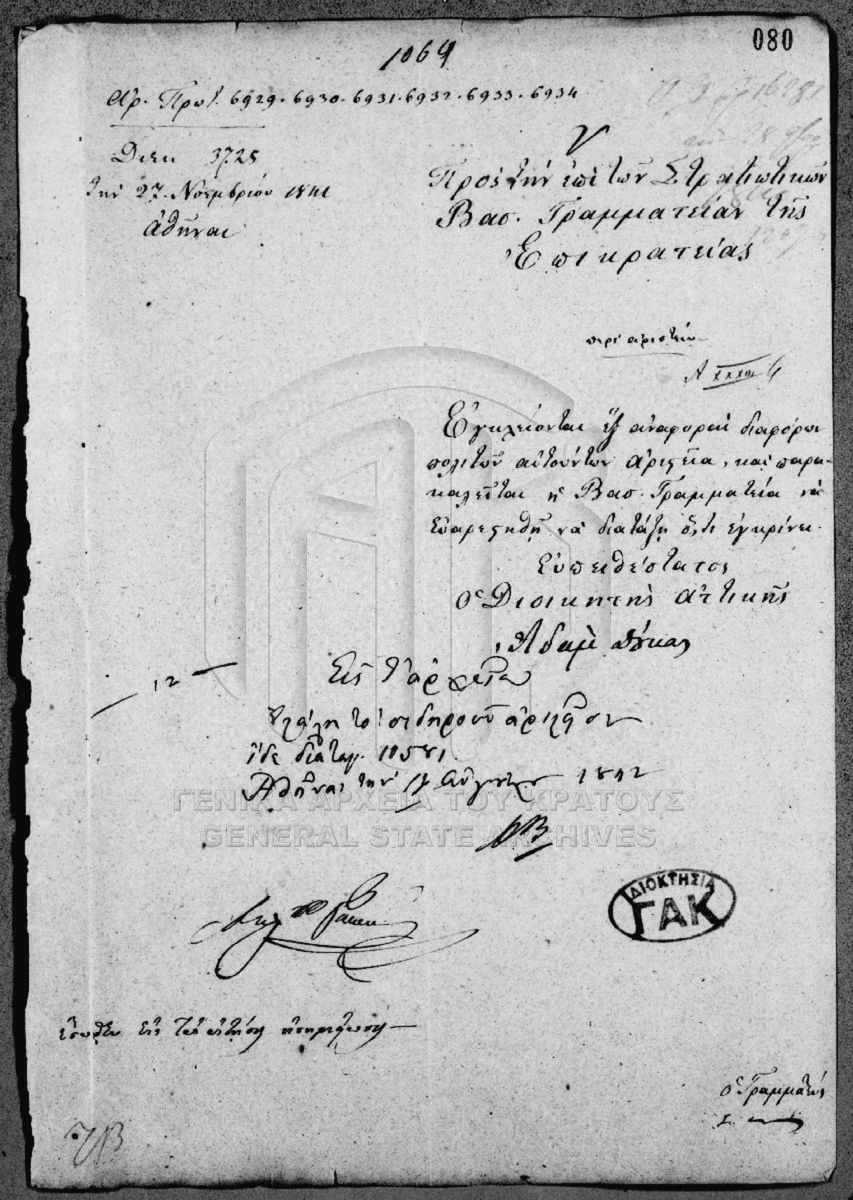 080
1064
Αρ. Πρωτ. 6929. 6930. 6931. 6932. 6933. 6934
Διεκ 3728
την 27 Νοεμβρίου 1841
Ἀθῆναι
Πρὸς τὴν ἐπὶ τῶν Στρατιωτικῶν
Βασ. Γραμματείαν τῆς
Ἐπικρατείας
περὶ ἀριστείων
Ἐγκλείονται ἕξ ἀναφοραὶ διαφόρων
πολιτῶν αἰτούντων ἀριστεῖα, καὶ παρα-
καλεῖται ἡ Βασ. Γραμματεία νὰ
εὐαρεστηθῇ νὰ διατάξῃ ὅ,τι ἐγκρίνει.
Εὐπειθέστατος
ὁ Διοικητὴς Ἀττικῆς
Ἀδὰμ Δούκας
12
Εἰς τ' ἀρχεῖα
τὸ σιδηροῦν ἀριστεῖον
ἴδε διαταγ. 10581
Ἀθῆναι τὴν Αὐγούστου 1842
ΓΕΝΙΚΑ ΑΡΧΕΙΑ ΤΟΥ ΚΡΑΤΟΥΣ
GENERAL STATE ARCHIVES
ΙΔΙΟΚΤΗΣΙΑ
ΓΑΚ
ἔσωθεν εἰς
ὁ Γραμματεύς